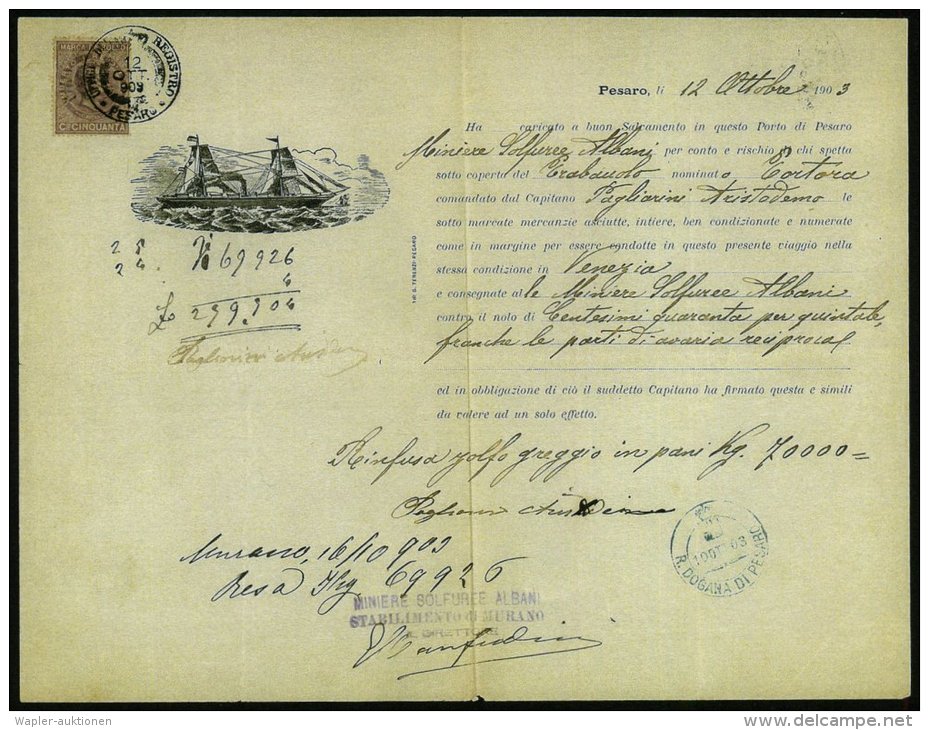 MARCA DA BOLLO
Cmi CINQUANTA
REGISTRO
PESARO
12
OTT
903
Pesaro, li 12 Ottobre 1903
Ha caricato a buon Salvamento in questo Porto di Pesaro
Miniere Solfuree Albani per conto e rischio di chi spetta
sotto coperta del Trabaccolo nominato Tortora
comandato dal Capitano Pagliarini Aristodemo le
sotto marcate mercanzie asciutte, intiere, ben condizionate e numerate
come in margine per essere condotte in questo presente viaggio nella
stessa condizione in Venezia
e consegnate alle Miniere Solfuree Albani
contro il nolo di Centesimi quaranta per quintale,
franche le parti di avaria reciproca
ed in obbligazione di ciò il suddetto Capitano ha firmato questa e simili
da valere ad un solo effetto.
TIP. G. TERENZI PESARO
69926
4
Rinfusa zolfo greggio in pani Kg. 70000=
Murano, 16/10 903
Resa Kg 69926
MINIERE SOLFUREE ALBANI
STABILIMENTO di MURANO
IL DIRETTORE
R. DOGANA DI PESARO
Wapler-auktionen